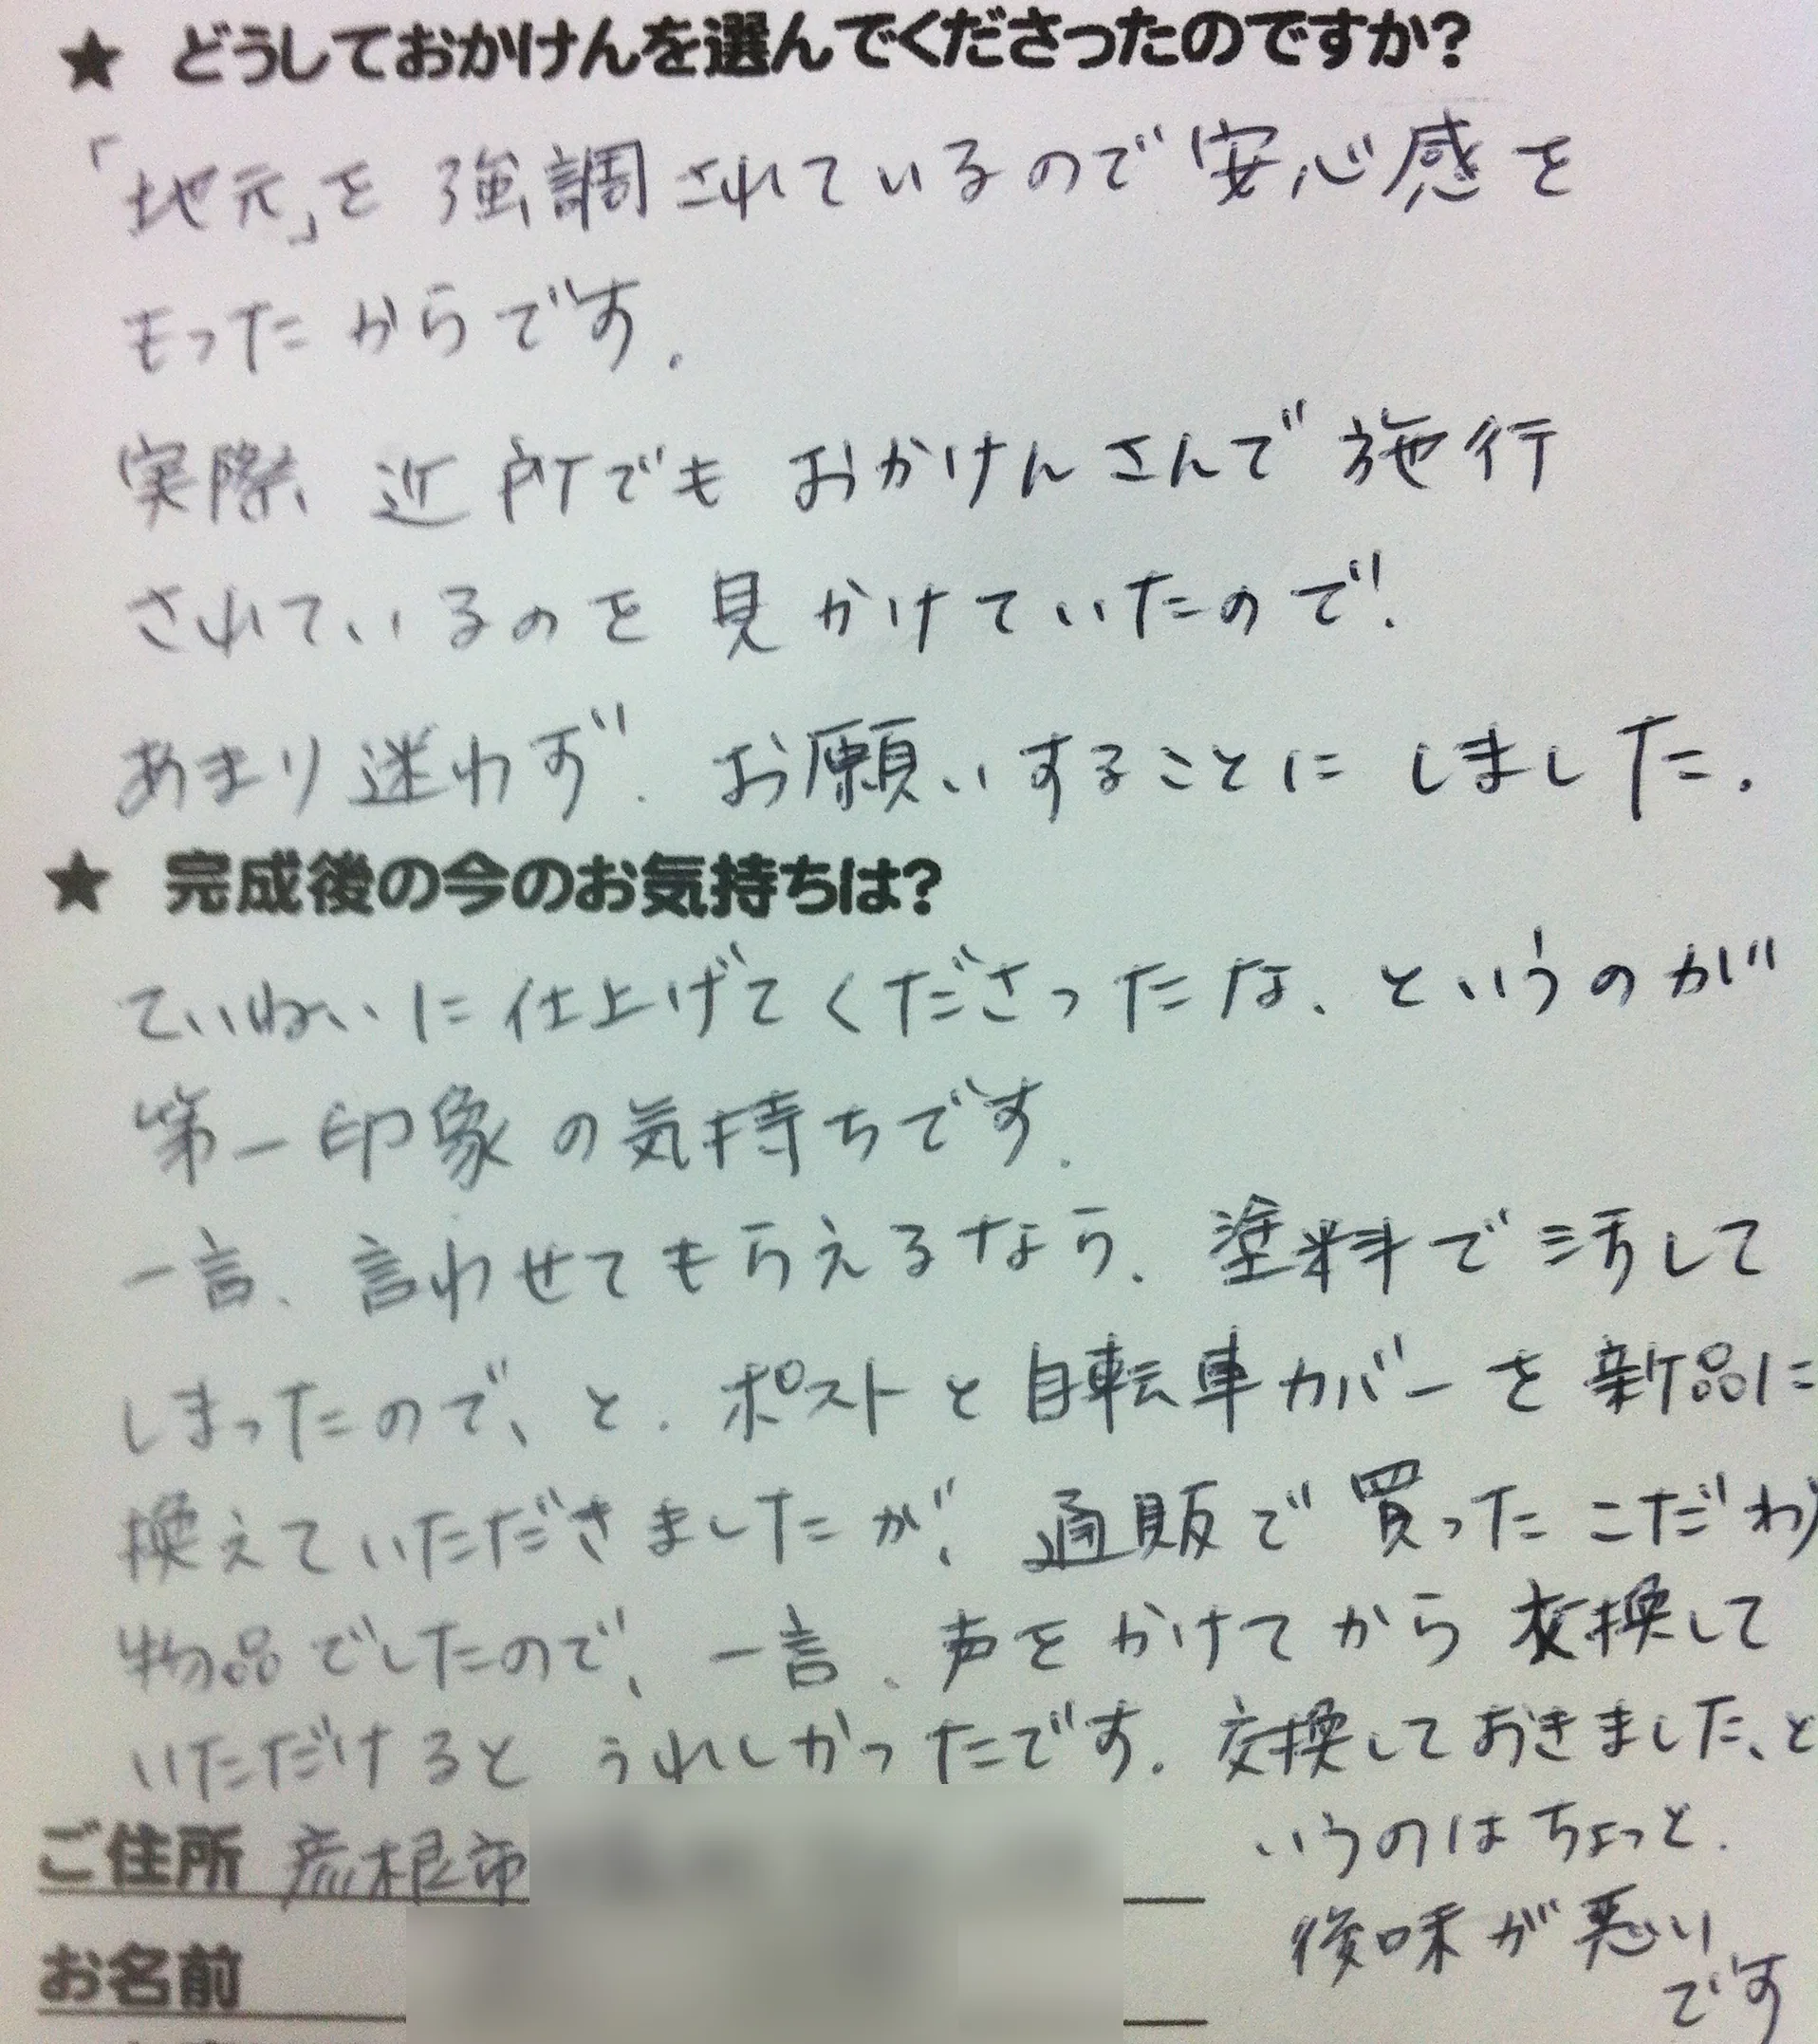 ★ どうしておかけんを選んでくださったのですか?
「地元」を強調されているので安心感を
もったからです.
実際、近所でもおかけんさんで施行
されているのを見かけていたので、
あまり迷わず、お願いすることにしました.
★ 完成後の今のお気持ちは?
ていねいに仕上げてくださったな、というのが
第一印象の気持ちです.
一言、言わせてもらえるなら、塗料で汚して
しまったので、と、ポストと自転車カバーを新品に
換えていただきましたが、通販で買ったこだわり
物品でしたので、一言、声をかけてから交換して
いただけるとうれしかったです. 交換しておきました、と
いうのはちょっと、
後味が悪い
です
ご住所 彦根市
お名前